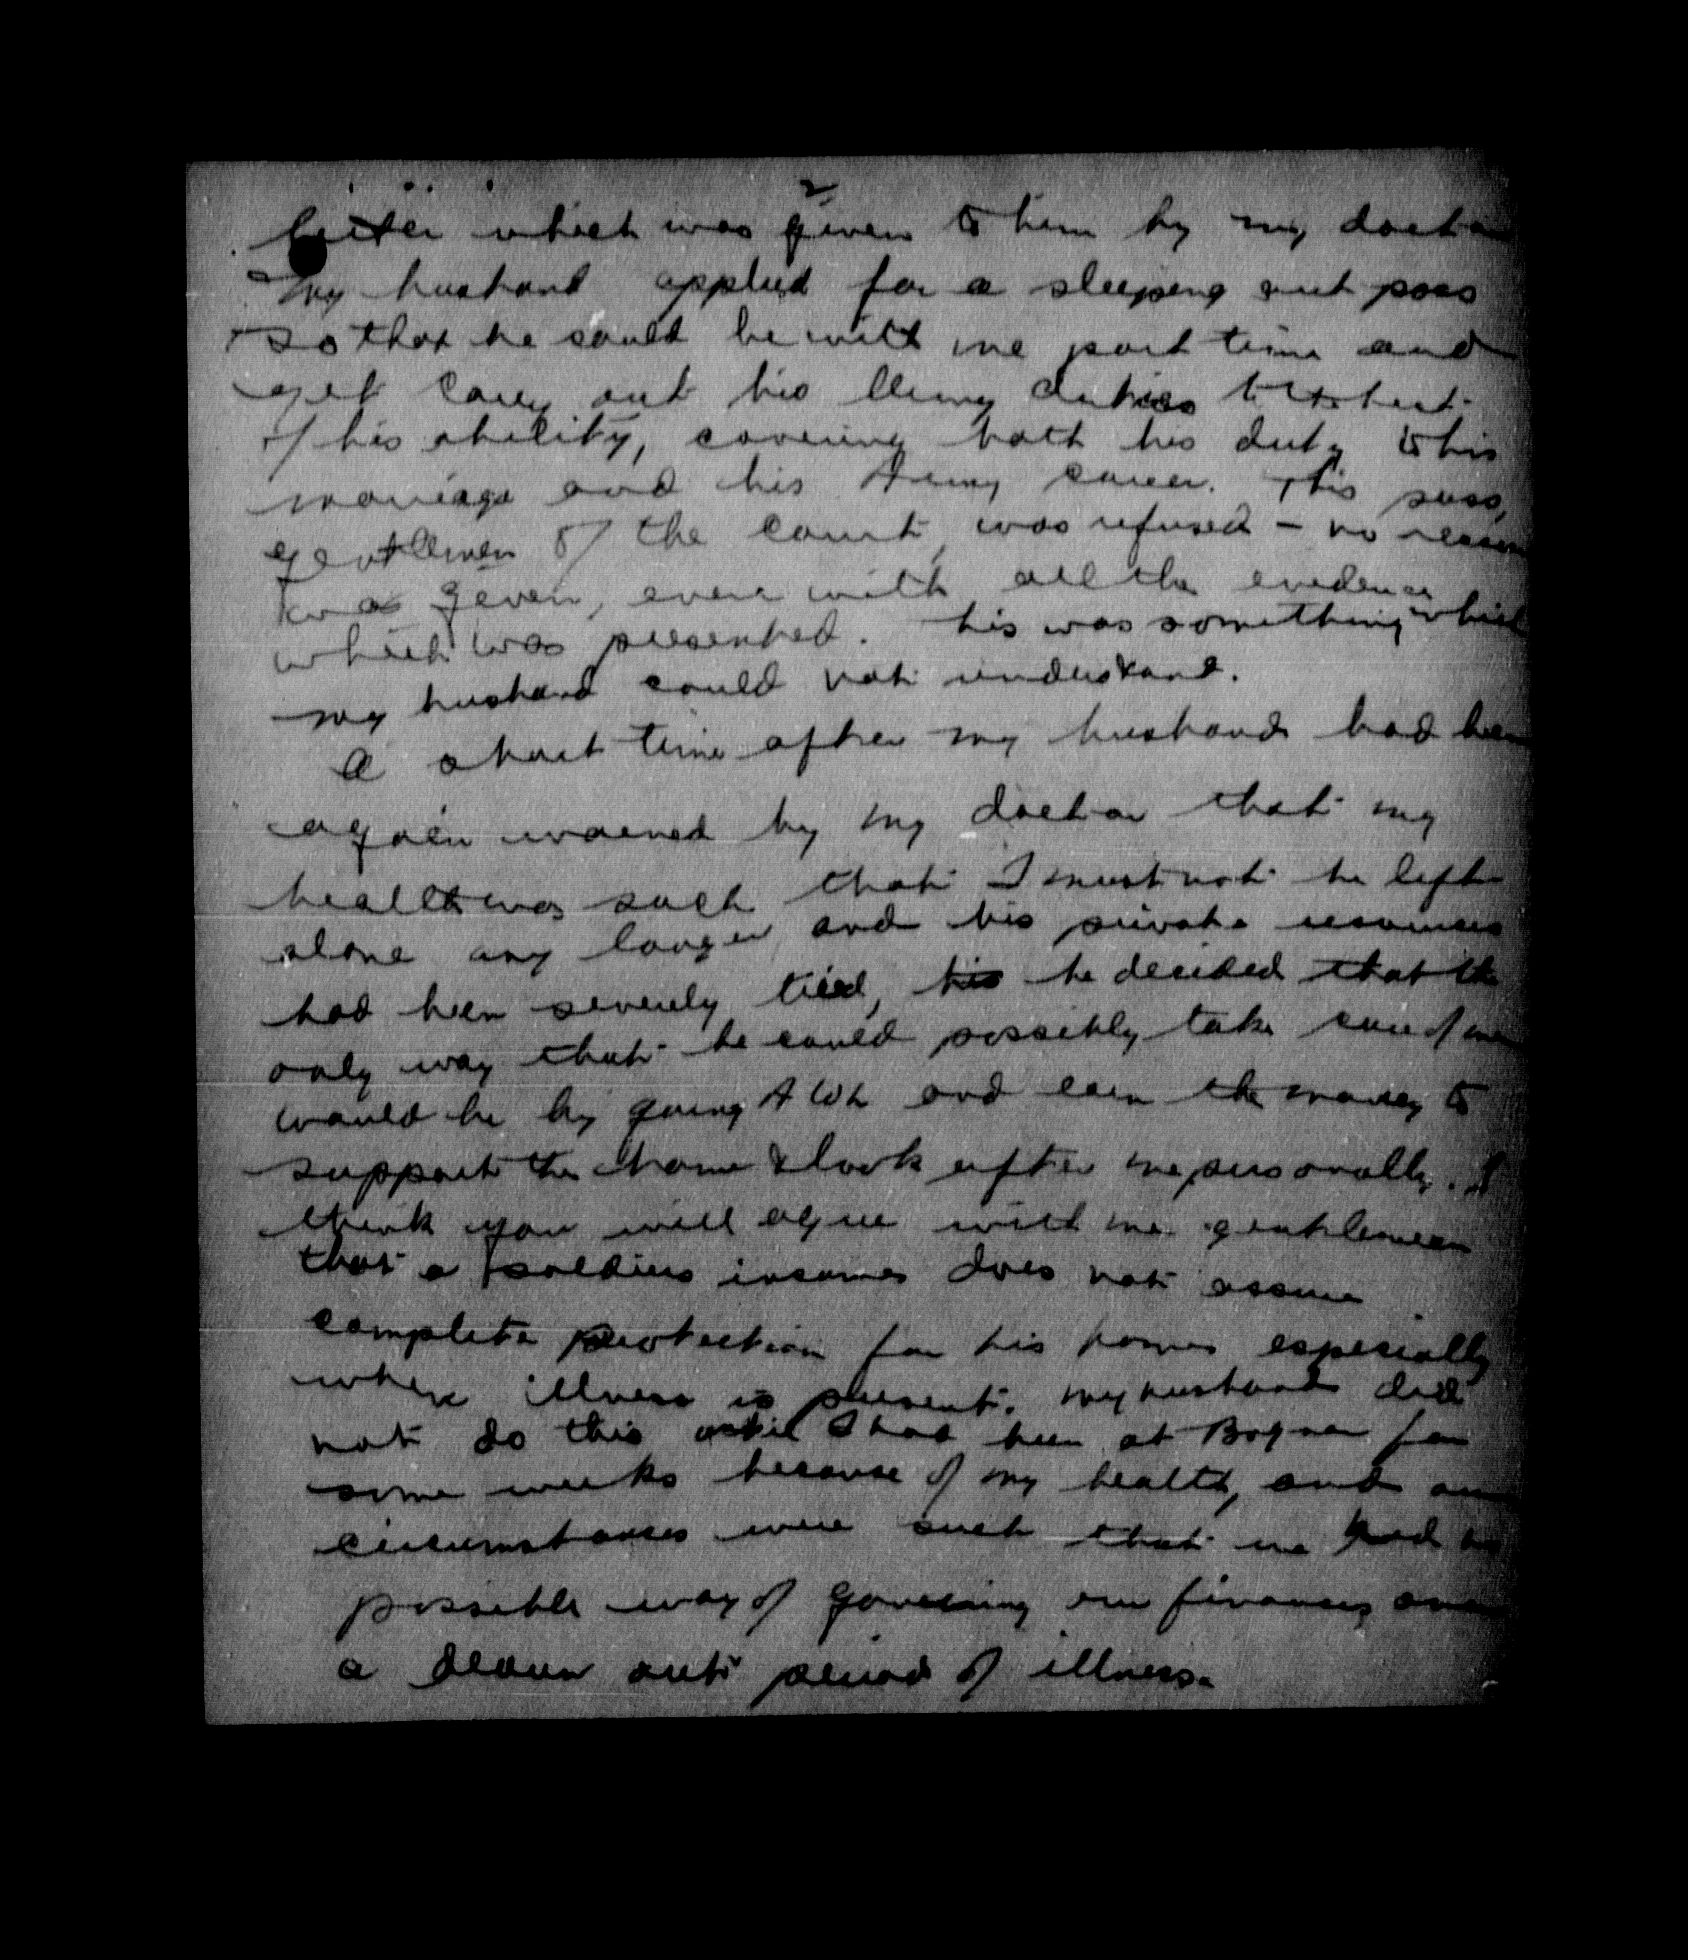 2
letter which was given to him by my doctor
My husband applied for a sleeping out pass
so that he could be with me part time and
yet carry out his Army duties to the best
of his ability, covering both his duty to his
marriage and his Army career. This pass,
gentlemen of the court, was refused – no reason
was given, even with all the evidence
which was presented. This was something which
my husband could not understand.
A short time after my husband had been
again warned by my doctor that my
health was such that I must not be left
alone any longer and his private resources
had been severely tied, his he decided that the
only way that he could possibly take care of me
would be by going AWL and earn the money to
support the home & look after me personally. I
think you will agree with me gentlemen
that a soldiers incomes does not assure
complete protection for his home especially
when illness is present. My husband did
not do this until I had been at Bognor for
some weeks because of my health, and our
circumstances were such that we had no
possible way of governing our finances over
a drawn out period of illness.